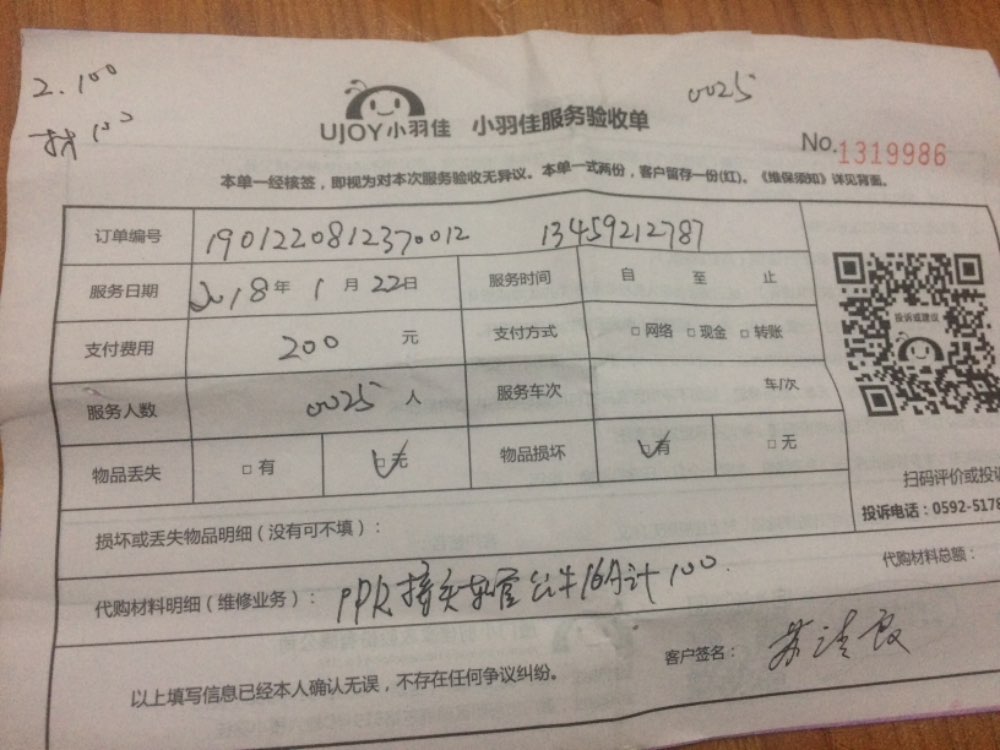 2.100
0025
UJOY小羽佳 小羽佳服务验收单
No.1319986
本单一经核签，即视为对本次服务验收无异议。本单一式两份，客户留存一份(红)。《维保须知》详见背面。
订单编号 1901220812370012 13459212787
服务日期 2018年1月22日 服务时间 自 至 止
支付费用 200 元 支付方式 □网络 □现金 □转账
服务人数 0025 人 服务车次 车/次
物品丢失 □有 □无 物品损坏 □有 □无
投诉或建议
扫码评价或投诉
投诉电话：0592-5178
损坏或丢失物品明细（没有可不填）：
代购材料明细（维修业务）： PPR接头软管公牛16A计100
代购材料总额：
以上填写信息已经本人确认无误，不存在任何争议纠纷。
客户签名：